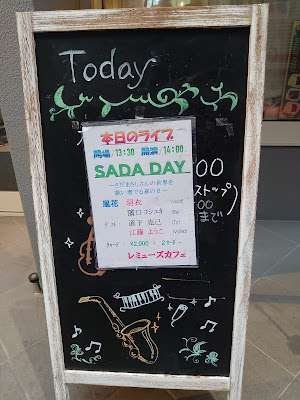 Today
本日のライブ
開場/13:30 開演/14:00
SADA DAY
〜さだまさしさんの世界を
歌い奏でる音のせ〜
風花 羽衣
濱口ヨシユキ
ゲスト 道下 克己
江藤 ようこ
チャージ ¥2,000 + 2オーダー
レミューズカフェ
00
ストップ)
00
まで